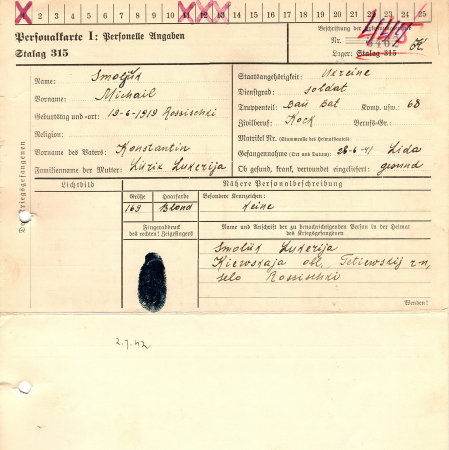 1 2 3 4 5 6 7 8 9 10 11 12 13 14 15 16 17 18 19 20 21 22 23 24 25
Personalkarte I: Personelle Angaben
Stalag 315
Beschriftung der Erkennungsmarke
Nr.
Lager: Stalag 315
Des Kriegsgefangenen
Name: Smoljuk
Vorname: Michail
Geburtstag und -ort: 19-6-1919 Rossischki
Religion:
Vorname des Vaters: Konstantin
Familienname der Mutter: Lukerija
Staatsangehörigkeit: Ukreine
Dienstgrad: soldat
Truppenteil: Bau Bat Komp. usw.: 68
Zivilberuf: Kock Berufs-Gr.:
Matrikel Nr. (Stammrolle des Heimatstaates):
Gefangennahme (Ort und Datum): 28-6-41 Lida
Ob gesund, krank, verwundet eingeliefert: gesund
Lichtbild
Nähere Personalbeschreibung
Größe
Haarfarbe
Besondere Kennzeichen:
169
Blond
Keine
Fingerabdruck
des rechten! Zeigefingers!
Name und Anschrift der zu benachrichtigenden Person in der Heimat
des Kriegsgefangenen
Smoljuk Lukerija
Kiewskaja obl. Tetiewskij r-n,
selo Rossischki
Wenden!
2.7.42